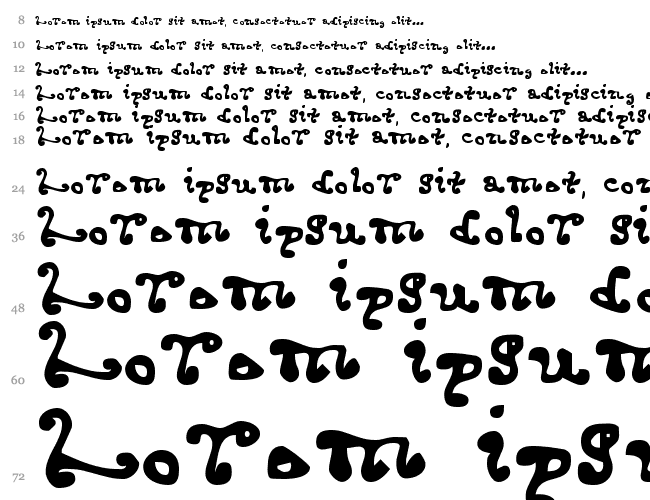 8 Lorem ipsum dolor sit amet, consectetuer adipiscing elit...
10 Lorem ipsum dolor sit amet, consectetuer adipiscing elit...
12 Lorem ipsum dolor sit amet, consectetuer adipiscing elit...
14 Lorem ipsum dolor sit amet, consectetuer adipiscing e
16 Lorem ipsum dolor sit amet, consectetuer adipis
18 Lorem ipsum dolor sit amet, consectetuer
24 Lorem ipsum dolor sit amet, co
36 Lorem ipsum dolor si
48 Lorem ipsum do
60 Lorem ipsum
72 Lorem ipsu